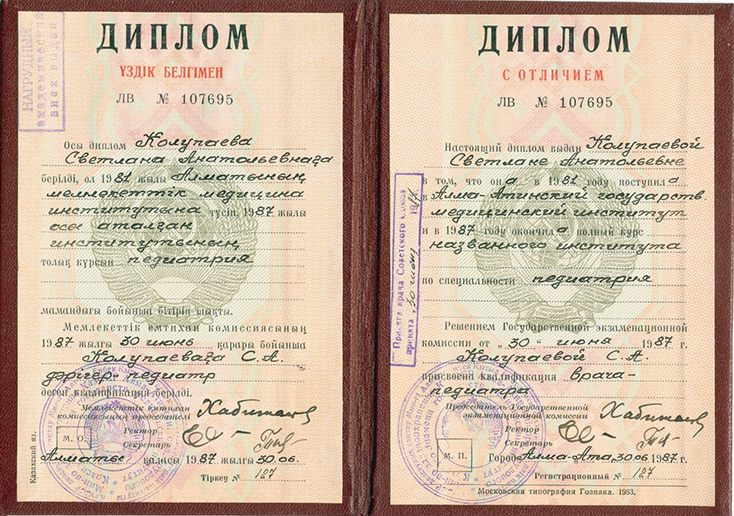 НАГРУДНЫЙ
академический
знак выдан
ДИПЛОМ
ҮЗДІК БЕЛГІМЕН
ЛВ № 107695
Осы диплом Колупаева
Светлана Анатольевнаға
берілді, ол 1981 жылы Алматының
мемлекеттік медицина
институтына түсіп, 1987 жылы
осы аталған
институтының
толық курсын педиатрия
мамандығы бойынша бітіріп шықты.
Мемлекеттік емтихан комиссиясының
1987 жылғы 30 июнь қарары бойынша
Колупаеваға С. А.
дәрігер-педиатр
деген квалификация берілді.
Мемлекеттік емтихан
комиссиясының председателі
Ректор
М. О.
Секретарь
Алматы қаласы 1987 жылғы 30.06.
Казахский яз.
Тіркеу № 127
ДИПЛОМ
С ОТЛИЧИЕМ
ЛВ № 107695
Настоящий диплом выдан Колупаевой
Светлане Анатольевне
в том, что она в 1981 году поступила
в Алма-Атинский государств.
медицинский институт
и в 1987 году окончила полный курс
названного института
по специальности педиатрия
Присяга врача Советского Союза
принята „30 июня 1987г.
Решением Государственной экзаменационной
комиссии от „30“ июня 1987 г.
Колупаевой С. А.
присвоена квалификация врача-
педиатра
Председатель Государственной
экзаменационной комиссии
Ректор
Секретарь
М. П.
Город Алма-Ата 30.06 1987 г.
Регистрационный № 127
Московская типография Гознака. 1983.